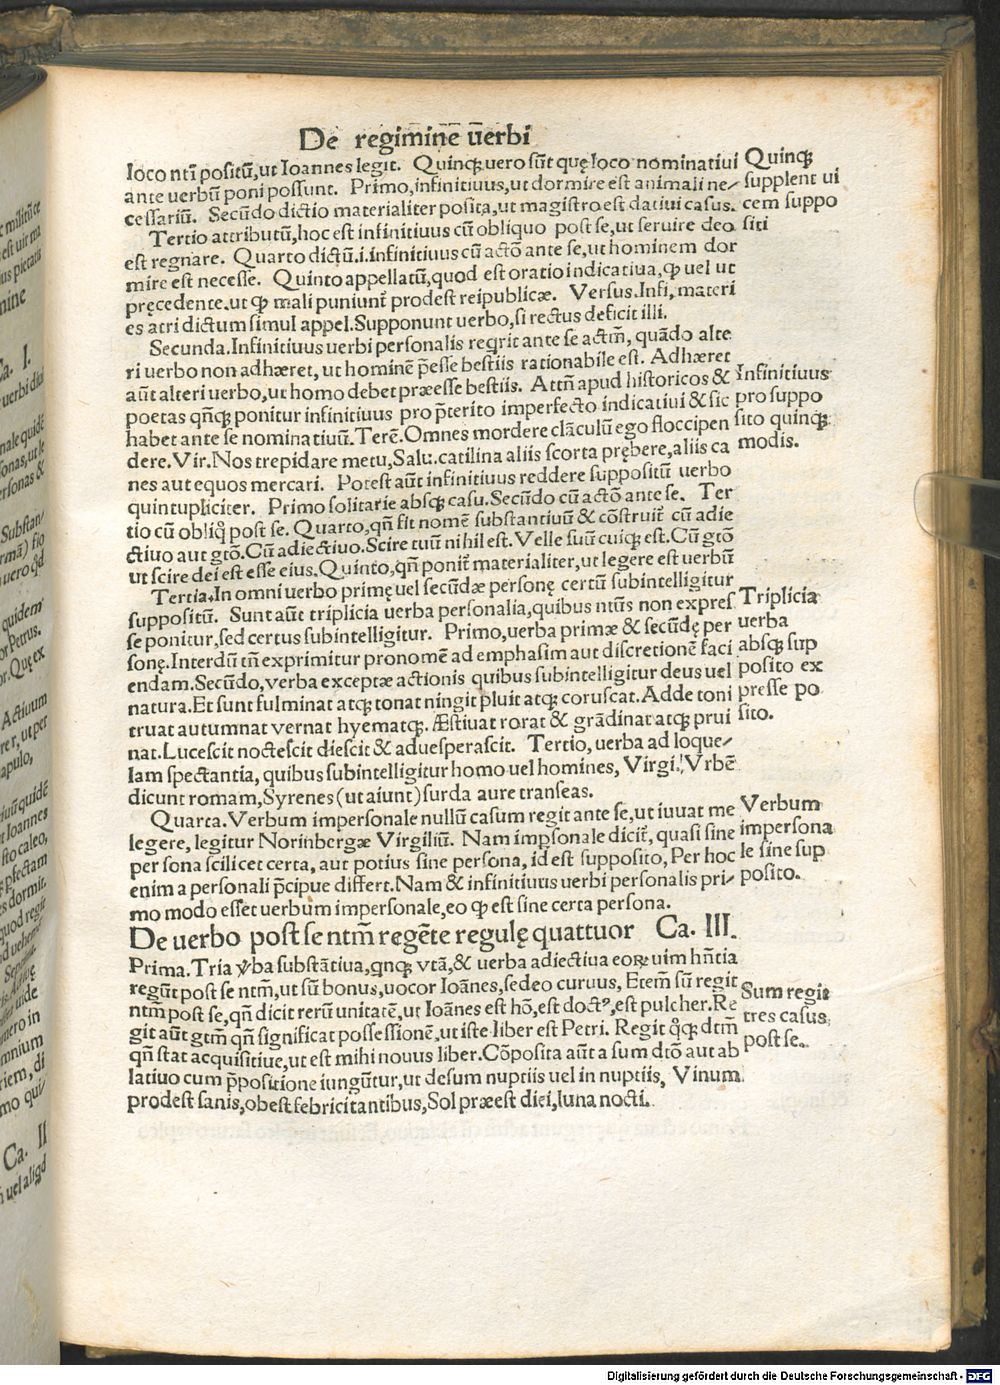 De regimine ūerbi
loco ntī positū,ut Ioannes legit. Quinqꝫ uero sūt quę loco nominatiui
ante uerbū poni possunt. Primo,infinitiuus,ut dormire est animali ne/
cessariū. Secūdo dictio materialiter posita,ut magistro est datiui casus.
Tertio attributū,hoc est infinitiuus cū obliquo post se,ut seruire deo
est regnare. Quarto dictū.i.infinitiuus cū actō ante se,ut hominem dor
mire est necesse. Quinto appellatū,quod est oratio indicatiua,ꝙ uel ut
pręcedente.ut ꝙ mali puniunt̄ prodest reipublicæ. Versus.Infi, materi
es atri dictum simul appel.Supponunt uerbo,si rectus deficit illi.
Secunda.Infinitiuus uerbi personalis regrit ante se actm̄, quādo alte
ri uerbo non adhæret, ut hominē p̄esse bestiis rationabile est. Adhæret
aūt alteri uerbo,ut homo debet præesse bestiis. Attn̄ apud historicos &
poetas qn̄qꝫ ponitur infinitiuus pro p̄terito imperfecto indicatiui & sic
habet ante se nominatiuū.Terē.Omnes mordere clāculū ego floccipen
dere.Vir.Nos trepidare metu,Salu.catilina aliis scorta prębere,aliis ca
nes aut equos mercari. Potest aūt infinitiuus reddere suppositū uerbo
quintupliciter. Primo solitarie absqꝫ casu.Secūdo cū actō ante se. Ter
tio cū obliq̄ post se. Quarto,qn̄ fit nomē substantiuū & cōstruit̄ cū adie
ctiuo aut gtō.Cū adiectiuo.Scire tuū nihil est. Velle suū cuiqꝫ est.Cū gtō
ut scire dei est esse eius.Quinto,qn̄ ponit̄ materialiter,ut legere est uerbū
Tertia.In omni uerbo primę uel secūdæ personę certū subintelligitur
suppositū. Sunt aūt triplicia uerba personalia,quibus ntūs non expres
se ponitur,sed certus subintelligitur. Primo,uerba primæ & secūdę per
sonę.Interdū tn̄ exprimitur pronomē ad emphasim aut discretionē faci
endam.Secūdo,verba exceptæ actionis quibus subintelligitur deus uel
natura.Et sunt fulminat atqꝫ tonat ningit pluit atqꝫ coruscat.Adde toni
truat autumnat vernat hyematqꝫ. Æstiuat rorat & grādinat atqꝫ prui
nat.Lucescit noctescit diescit & aduesperascit. Tertio,uerba ad loque/
lam spectantia, quibus subintelligitur homo uel homines, Virgi. Vrbē
dicunt romam,Syrenes (ut aiunt) surda aure transeas.
Quarta.Verbum impersonale nullū casum regit ante se,ut iuuat me
legere, legitur Norinbergæ Virgiliū. Nam imp̱sonale dicit̄, quasi sine
persona scilicet certa, aut potius sine persona, id est supposito, Per hoc
enim a personali p̄cipue differt.Nam & infinitiuus uerbi personalis pri/
mo modo esset uerbum impersonale,eo ꝙ est sine certa persona.
De uerbo post se ntm̄ regēte regulę quattuor Ca. III.
Prima.Tria v̄ba substātiua,qnqꝫ vtā,& uerba adiectiua eoꝝ uim hn̄tia
regūt post se ntm̄,ut sū bonus,uocor Ioānes,sedeo curuus, Etem̄ sū regit
ntm̄ post se,qn̄ dicit rerū unitatē,ut Ioānes est hō,est doctꝰ,est pulcher.Re
git aūt gtm̄ qn̄ significat possessionē,ut iste liber est Petri. Regit q̇qꝫ dtm̄
qn̄ stat acquisitiue,ut est mihi nouus liber.Cōposita aūt a sum dtō aut ab
latiuo cum p̄positione iungūtur,ut desum nuptiis uel in nuptiis, Vinum
prodest sanis,obest febricitantibus,Sol præest diei,luna nocti.
Quinqꝫ
supplent ui
cem suppo
siti
Infinitiuus
pro suppo
sito quinqꝫ
modis.
Triplicia
uerba
absqꝫ sup
posito ex
presse po
sito.
Verbum
impersona
le sine sup
posito.
Sum regit
tres casus
post se.
Ca. I.
Ca. II
Digitalisierung gefördert durch die Deutsche Forschungsgemeinschaft - DFG